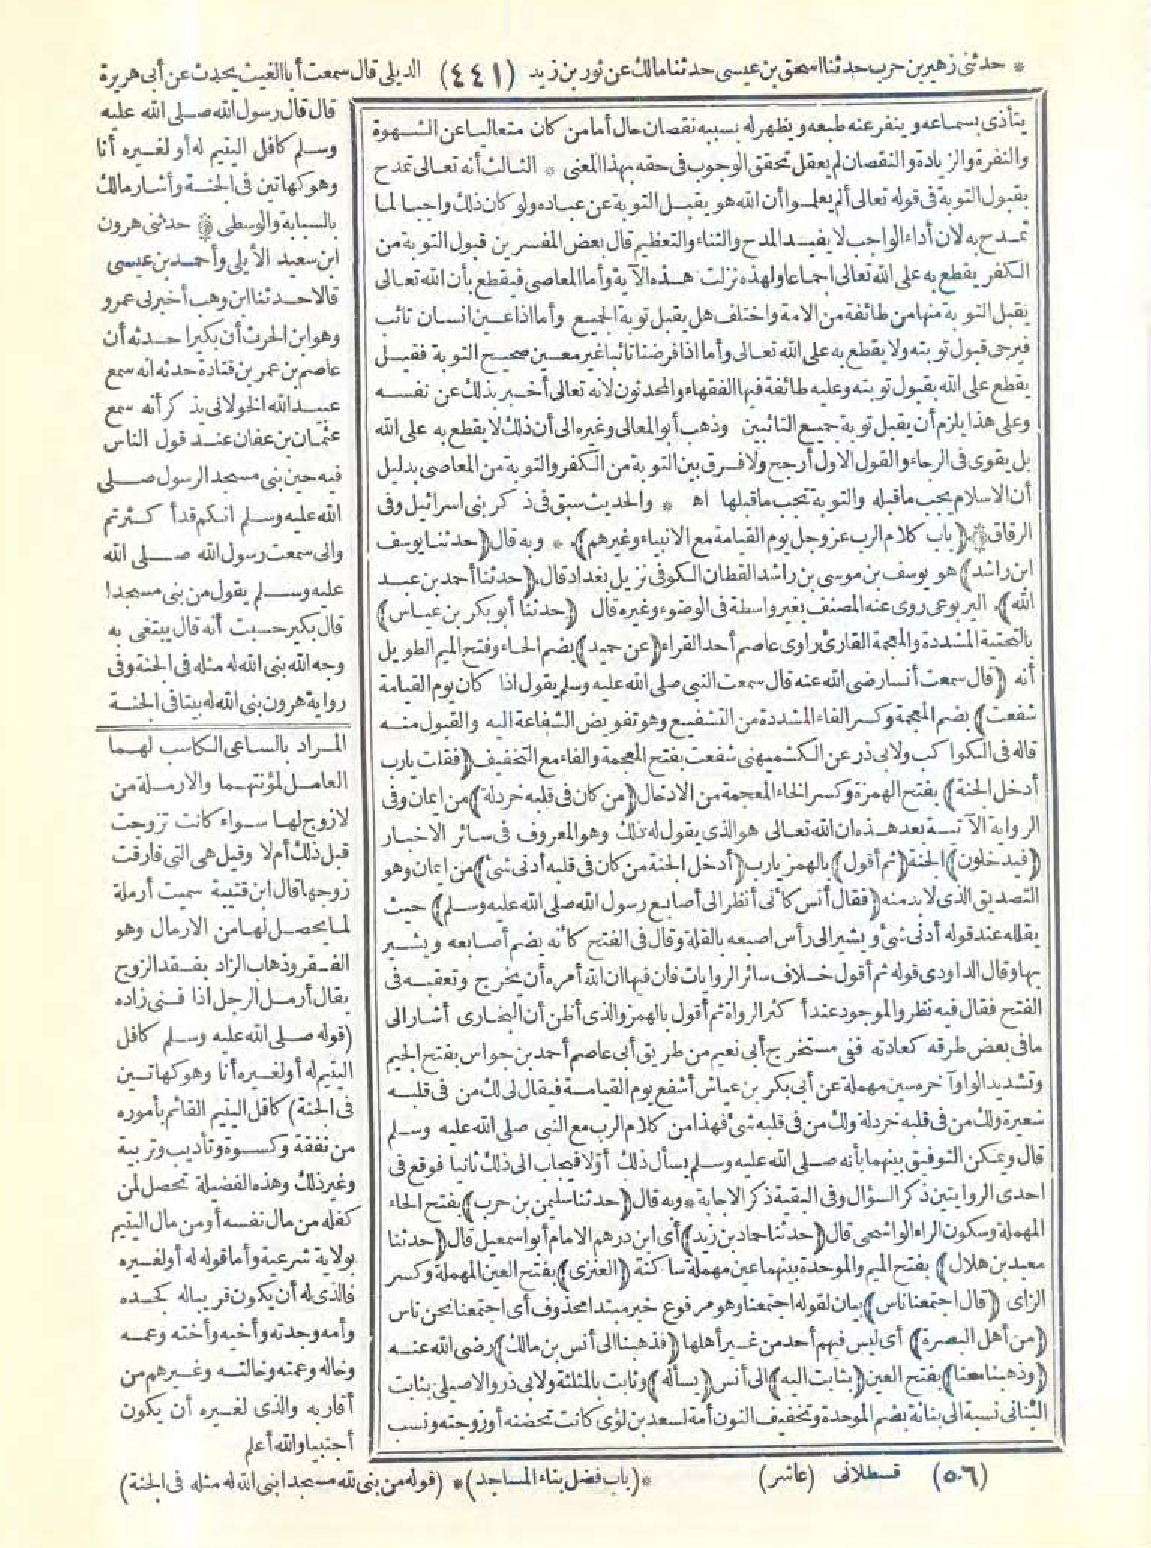 * حدثني زهير بن حرب حدثنا اسحق بن عيسى حدثنا مالك عن ثور بن زيد (٤٤١) الديلي قال سمعت أبا الغيث يحدث عن أبي هريرة
قال قال رسول الله صلى الله عليه
وسلم كافل اليتيم له أو لغيره أنا
وهو كهاتين في الجنة وأشار مالك
بالسبابة والوسطى * حدثني هرون
ابن سعيد الأيلي وأحمد بن عيسى
قالا حدثنا ابن وهب أخبرني عمرو
وهو ابن الحرث أن بكيرا حدثه أن
عاصم بن عمر بن قتادة حدثه انه سمع
عبيد الله الخولاني يذكر أنه سمع
عثمان بن عفان عند قول الناس
فيه حين بنى مسجد الرسول صلى
الله عليه وسلم انكم قد أكثرتم
واني سمعت رسول الله صلى الله
عليه وسلم يقول من بنى مسجدا
قال بكير حسبت أنه قال يبتغى به
وجه الله بنى الله له مثله في الجنة وفي
رواية هرون بنى الله له بيتا في الجنة
المراد بالساعى الكاسب لهما
العامل لمؤنتهما والارملة من
لا زوج لها سواء كانت تزوجت
قبل ذلك أم لا وقيل هي التي فارقت
زوجها قال ابن قتيبة سميت أرملة
لما يحصل لها من الارمال وهو
الفقر وذهاب الزاد بفقد الزوج
يقال أرمل الرجل اذا فني زاده
(قوله صلى الله عليه وسلم كافل
اليتيم له أو لغيره أنا وهو كهاتين
في الجنة) كافل اليتيم القائم بأموره
من نفقة وكسوة وتأديب وتربية
وغير ذلك وهذه الفضيلة تحصل لمن
كفله من مال نفسه أو من مال اليتيم
بولاية شرعية وأما قوله له أو لغيره
فالذي له أن يكون قريبا له كجده
وأمه وجدته وأخيه وأخته وعمه
وخاله وعمته وخالته وغيرهم من
أقاربه والذي لغيره أن يكون
أجنبيا والله أعلم
يتأذى بسماعه وينفر عنه طبعه ويظهر له بسببه نقصان حال أما من كان متعاليا عن الشهوة
والنفرة والزيادة والنقصان لم يعقل تحقق الوجوب في حقه بهذا المعنى * الثالث أنه تعالى تمدح
بقبول التوبة في قوله تعالى ألم يعلموا أن الله هو يقبل التوبة عن عباده ولو كان ذلك واجبا لما
تمدح به لان أداء الواجب لا يفيد المدح والثناء والتعظيم قال بعض المفسرين قبول التوبة من
الكفر يقطع به على الله تعالى اجماعا ولهذه نزلت هذه الآية وأما المعاصي فيقطع بأن الله تعالى
يقبل التوبة منها من طائفة من الامة واختلف هل يقبل توبة الجميع وأما اذا عين انسان تائب
فيرجى قبول توبته ولا يقطع به على الله تعالى وأما اذا فرضنا تائبا غير معين صحيح التوبة فقيل
يقطع على الله بقبول توبته وعليه طائفة فيها الفقهاء والمحدثون لانه تعالى أخبر بذلك عن نفسه
وعلى هذا يلزم أن يقبل توبة جميع التائبين وذهب أبو المعالي وغيره الى أن ذلك لا يقطع به على الله
بل يقوى في الرجاء والقول الاول أرجح ولا فرق بين التوبة من الكفر والتوبة من المعاصي بدليل
أن الاسلام يجب ما قبله والتوبة تجب ما قبلها اه * والحديث سبق في ذكر بني اسرائيل وفي
الرقاق * (باب كلام الرب عز وجل يوم القيامة مع الانبياء وغيرهم) * وبه قال (حدثنا يوسف
ابن راشد) هو يوسف بن موسى بن راشد القطان الكوفي نزيل بغداد قال (حدثنا أحمد بن عبد
الله) اليربوعي روى عنه المصنف بغير واسطة في الوضوء وغيره قال (حدثنا أبو بكر بن عياش)
بالتحتية المشددة والمعجمة القارئ راوى عاصم أحد القراء (عن حميد) بضم الحاء وفتح الميم الطويل
أنه (قال سمعت أنسا رضى الله عنه قال سمعت النبي صلى الله عليه وسلم يقول اذا كان يوم القيامة
شفعت) بضم المعجمة وكسر الفاء المشددة من التشفيع وهو تفويض الشفاعة اليه والقبول منه
قاله في الكواكب ولابي ذر عن الكشميهني شفعت بفتح المعجمة والفاء مع التخفيف (فقلت يارب
أدخل الجنة) بفتح الهمزة وكسر الخاء المعجمة من الادخال (من كان في قلبه خردلة) من ايمان وفي
الرواية الآتية بعد هذه ان الله تعالى هو الذي يقول له ذلك وهو المعروف في سائر الاخبار
(فيدخلون) الجنة (ثم أقول) بالهمز يارب (أدخل الجنة من كان في قلبه أدنى شئ) من ايمان وهو
التصديق الذي لا بد منه (فقال أنس كأني أنظر الى أصابع رسول الله صلى الله عليه وسلم) حيث
يقلله عند قوله أدنى شئ ويشير الى رأس اصبعه بالقلة وقال في الفتح كأنه يضم أصابعه ويشير
بها وقال الداودي قوله ثم أقول خلاف سائر الروايات فان فيها ان الله أمره أن يخرج وتعقبه في
الفتح فقال فيه نظر والموجود عند أكثر الرواة ثم أقول بالهمز والذي أظن أن البخاري أشار الى
ما في بعض طرقه كعادته ففي مستخرج أبي نعيم من طريق أبي عاصم أحمد بن جواس بفتح الجيم
وتشديد الواو آخره سين مهملة عن أبي بكر بن عياش أشفع يوم القيامة فيقال لي لك من في قلبه
شعيرة ولك من في قلبه خردلة ولك من في قلبه شئ فهذا من كلام الرب مع النبي صلى الله عليه وسلم
قال ويمكن التوفيق بينهما بأنه صلى الله عليه وسلم يسأل ذلك أولا فيجاب الى ذلك ثانيا فوقع في
احدى الروايتين ذكر السؤال وفي البقية ذكر الاجابة * وبه قال (حدثنا سليمن بن حرب) بفتح الحاء
المهملة وسكون الراء الواشحي قال (حدثنا حماد بن زيد) أي ابن درهم الامام أبو اسمعيل قال (حدثنا
معبد بن هلال) بفتح الميم والموحدة بينهما عين مهملة ساكنة (العنزي) بفتح العين المهملة وكسر
الزاى (قال اجتمعنا ناس) بيان لقوله اجتمعنا وهو مرفوع خبر مبتدا محذوف أي اجتمعنا نحن ناس
(من أهل البصرة) أي ليس فيهم أحد من غير أهلها (فذهبنا الى أنس بن مالك) رضى الله عنه
(وذهبنا معنا) بفتح العين (بثابت اليه) الى أنس (يسأله) وثابت بالمثلثة ولابي ذر والاصيلي بثابت
البناني نسبة الى بنانة بضم الموحدة وتخفيف النون أمة لسعد بن لؤى كانت تحضنه أو زوجته ونسب
(٥٠٦) قسطلاني (عاشر)
*(باب فضل بناء المساجد)* (قوله من بنى لله مسجدا بنى الله له مثله في الجنة)